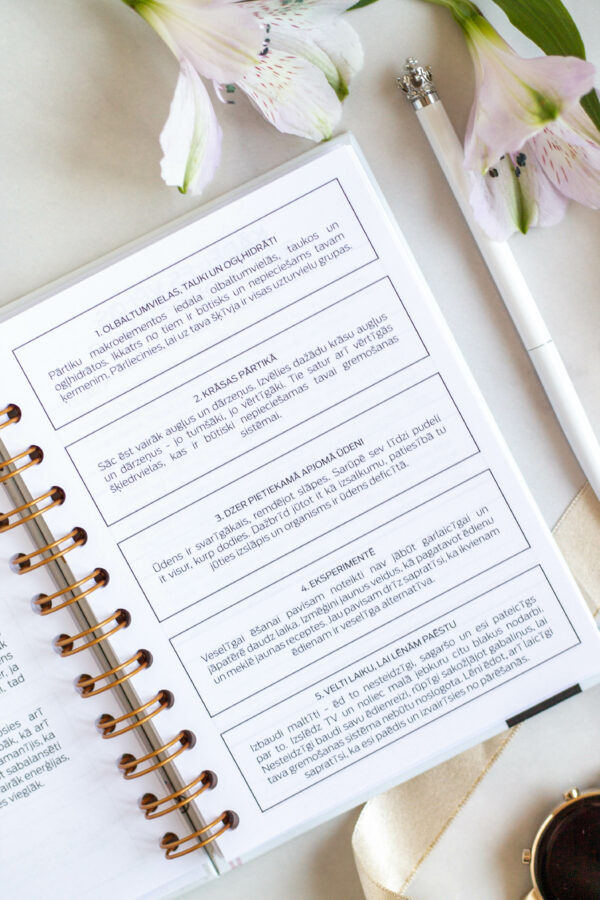 1. OLBALTUMVIELAS, TAUKI UN OGĻHIDRĀTI
Pārtiku makroelementos iedala olbaltumvielās, taukos un
ogļhidrātos. Ikkatrs no tiem ir būtisks un nepieciešams tavam
ķermenim. Pārliecinies, lai uz tava šķīvja ir visas uzturvielu grupas.
2. KRĀSAS PĀRTIKĀ
Sāc ēst vairāk augļus un dārzeņus. Izvēlies dažādu krāsu augļus
un dārzeņus - jo tumšāki, jo vērtīgāki. Tie satur arī vērtīgās
šķiedrvielas, kas ir būtiski nepieciešamas tavai gremošanas
sistēmai.
3. DZER PIETIEKAMĀ APJOMĀ ŪDENI
Ūdens ir svarīgākais, remdējot slāpes. Sarūpē sev līdzi pudeli
it visur, kurp dodies. Dažbrīd jūtot it kā izsalkumu, patiesībā tu
jūties izslāpis un organisms ir ūdens deficītā.
4. EKSPERIMENTĒ
Veselīgai ēšanai pavisam noteikti nav jābūt garlaicīgai un
jāpatērē daudz laika. Izmēģini jaunus veidus, kā pagatavot ēdienu
un meklē jaunas receptes. Jau pavisam drīz sapratīsi, ka ikvienam
ēdienam ir veselīga alternatīva.
5. VELTI LAIKU, LAI LĒNĀM PAĒSTU
Izbaudi maltīti - ēd to nesteidzīgi, sagaršo un esi pateicīgs
par to. Izslēdz TV un noliec malā jebkuru citu blakus nodarbi.
Nesteidzīgi baudi savu ēdienreizi, rūpīgi sakošļājot gabaliņus, lai
tava gremošanas sistēma nebūtu noslogota. Lēni ēdot, arī laicīgi
sapratīsi, ka esi paēdis un izvairīsies no pārēšanās.